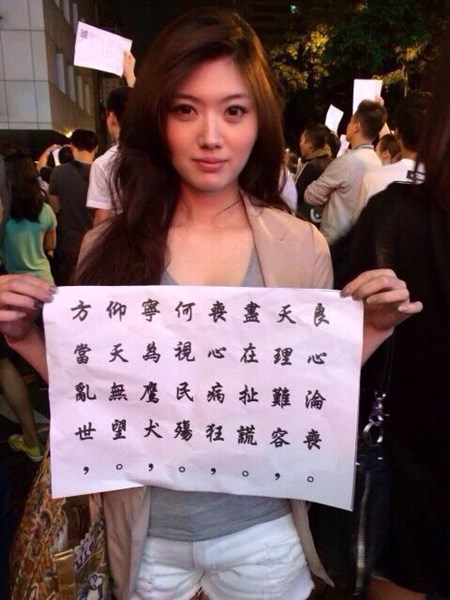 方當亂世，
仰天無望。
寧為鷹犬，
何視民殤。
喪心病狂，
盡在扯謊。
天理難容，
良心淪喪。